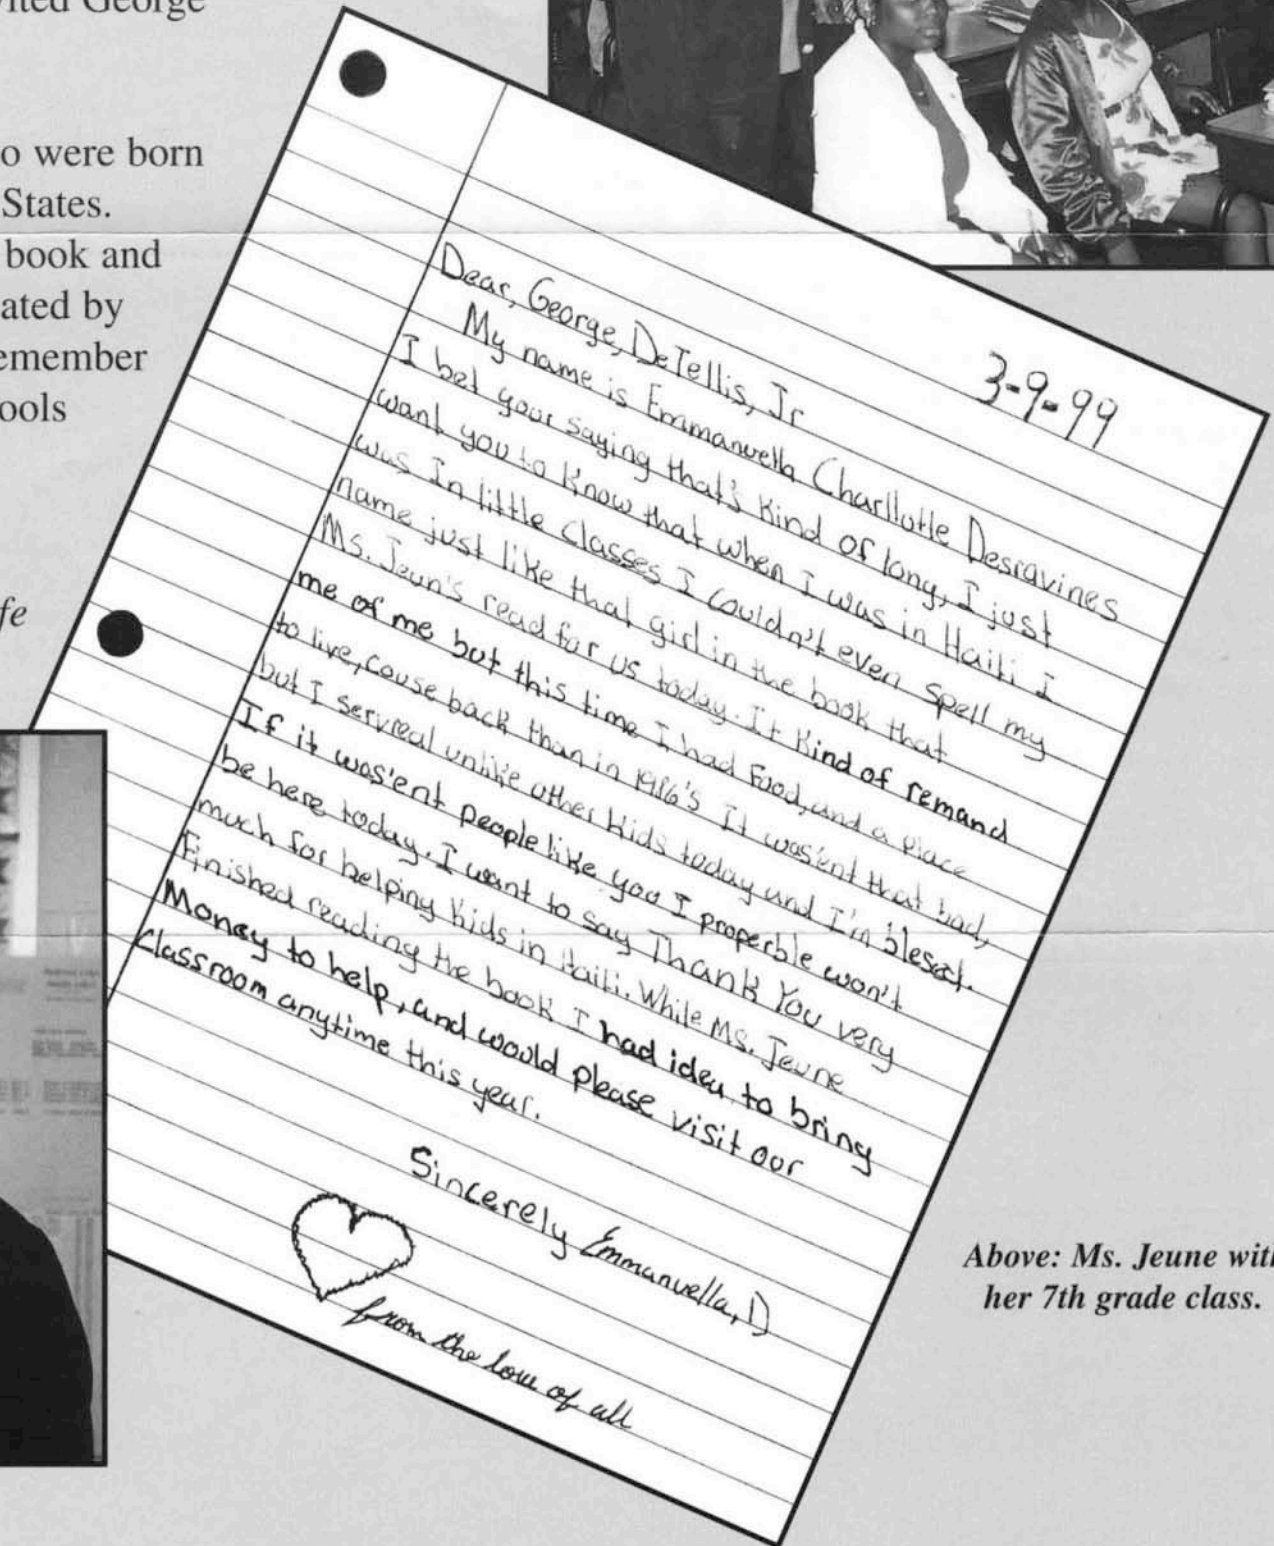 George
o were born
States.
book and
ated by
emember
ools
fe
3-9-99
Dear, George, DeTellis, Jr
My name is Emmanuella Charllotle Desravines
I bet your saying that's kind of long, I just
want you to know that when I was in Haiti I
was In little classes I couldn't even spell my
name just like that girl in the book that
Ms. Jeun's read for us today. It kind of remand
me of me but this time I had Food, and a place
to live, cause back than in 1986's It was'ent that bad,
but I servreal unlike other kids today and I'm blesed.
If it was'ent people like you I properble won't
be here today. I want to say Thank You very
much for helping kids in Haiti. While Ms. Jeune
Finished reading the book I had idea to bring
Money to help, and would please visit our
Classroom anytime this year.
Sincerely Emmanuella, D
from the love of all
Above: Ms. Jeune with
her 7th grade class.